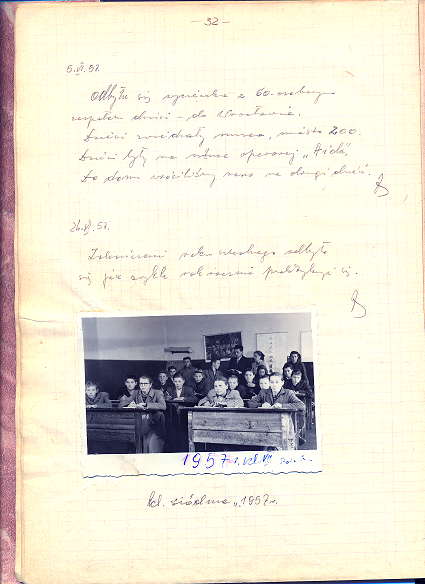 — 32 —
5.VI.57.
Odbyła się wycieczka z 60-osobowym
zespołem dzieci - do Wrocławia.
Dzieci zwiedzały muzea, miasto, ZOO.
Dzieci były na sztuce operowej "Aida".
Do domu wróciliśmy rano na drugi dzień.
26.VI.57.
Zakończenie roku szkolnego odbyło
się jak zwykle
1957 r. kl. VII
kl. siódma 1957 r.